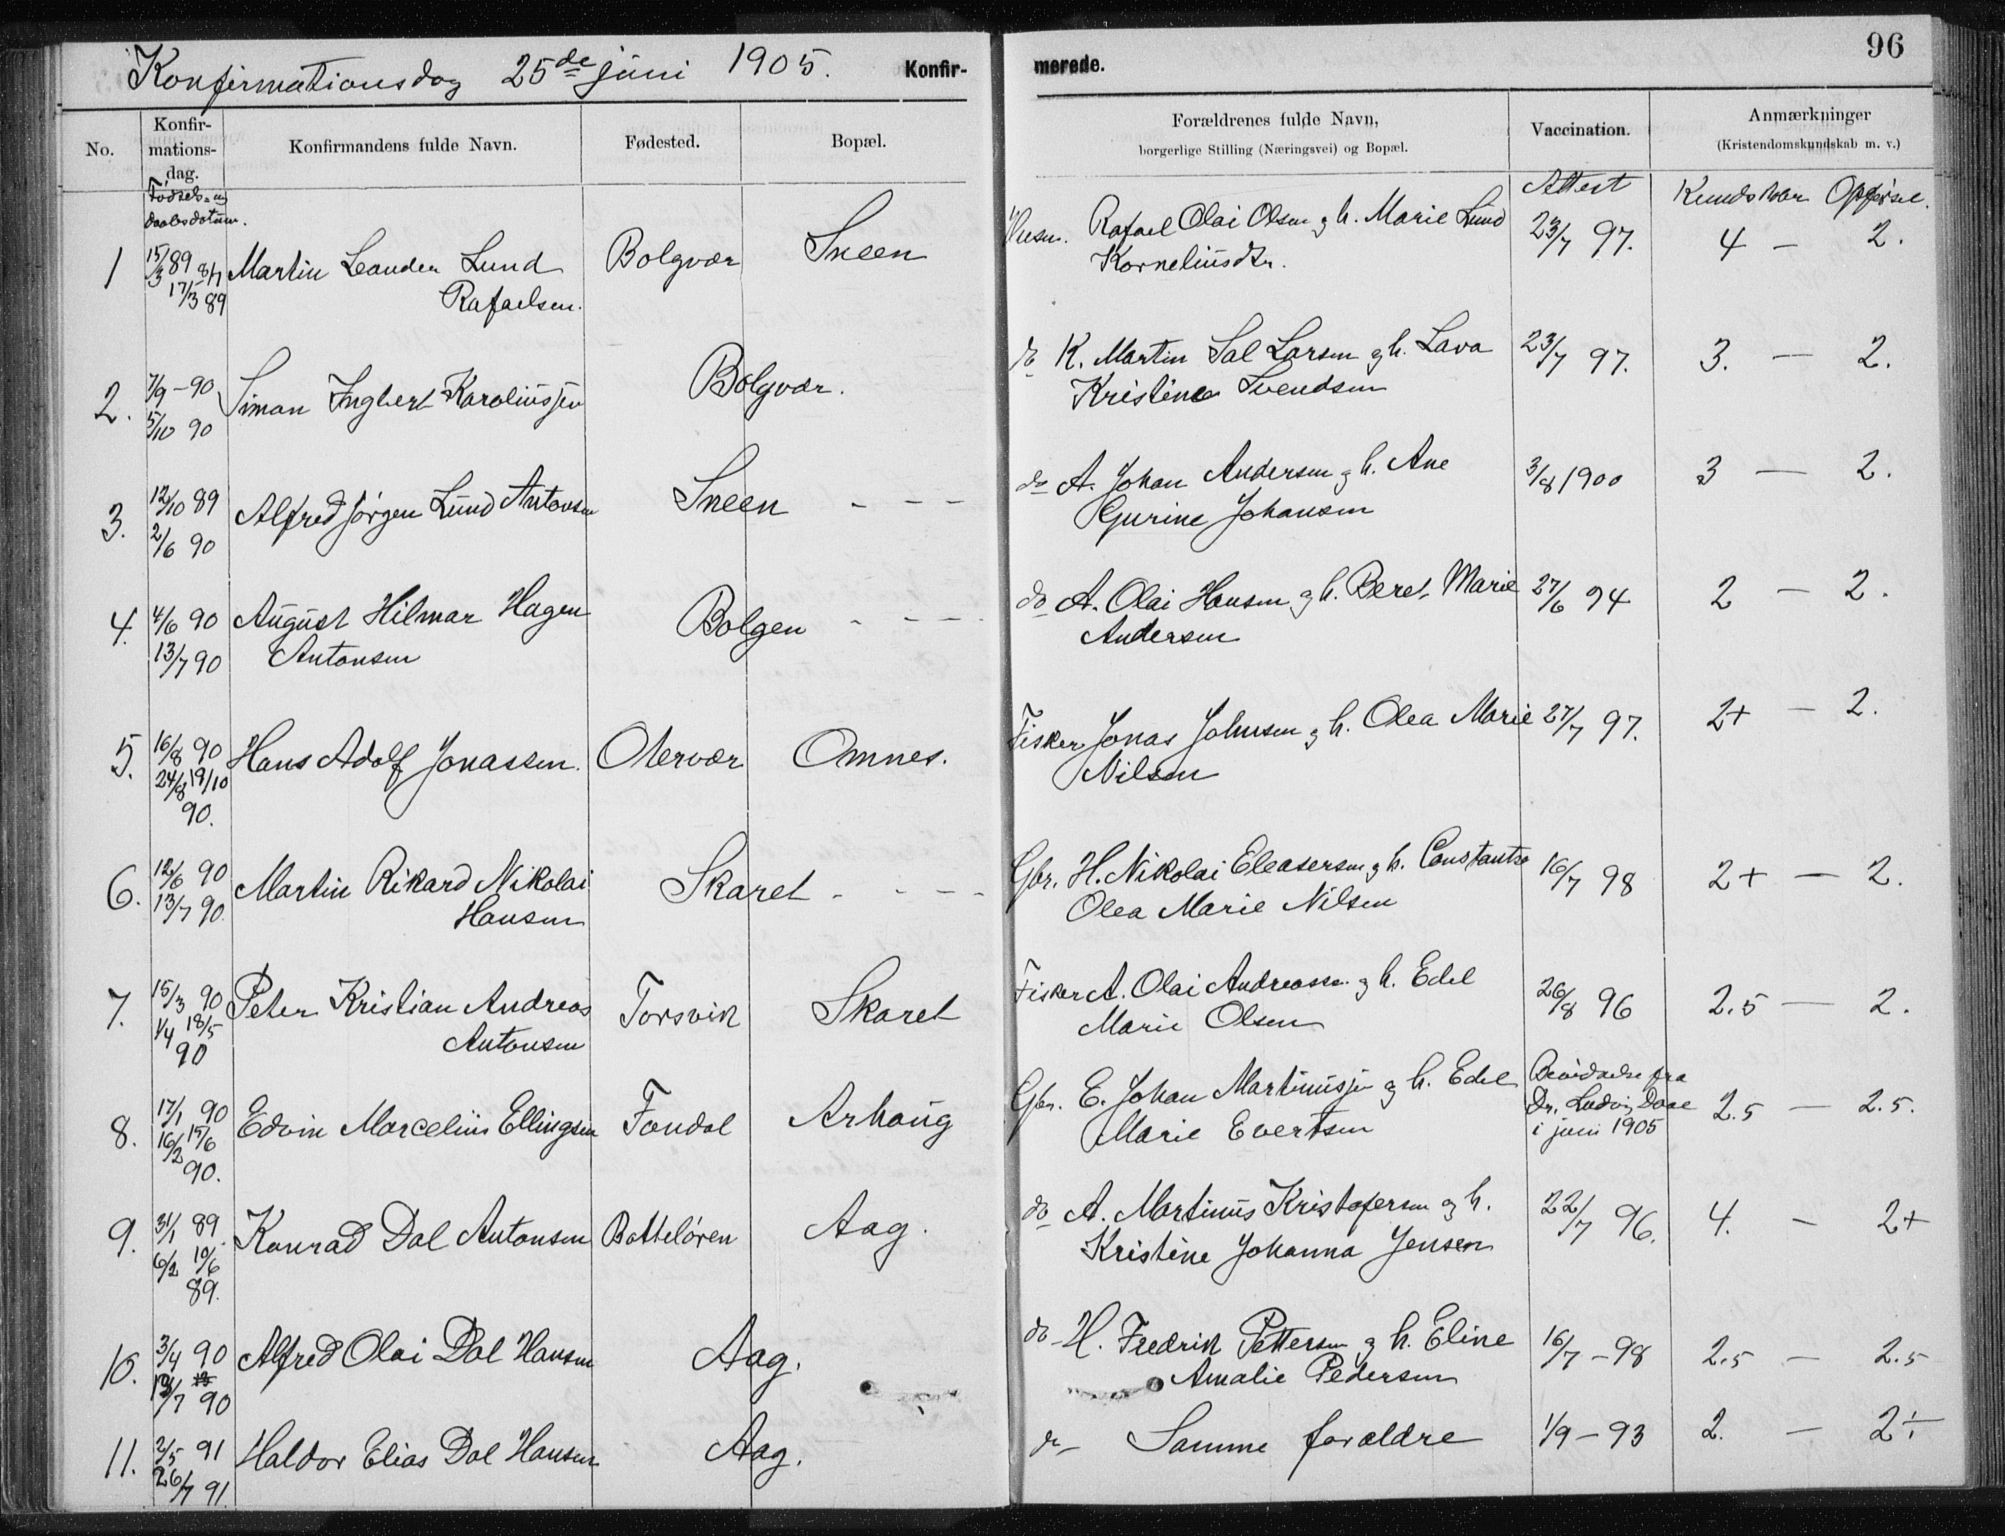 96
Konfirmationsdag 25de juni 1905. Konfir- merede.
No. Konfir- mations- dag. Konfirmandens fulde Navn. Fødested. Bopæl. Forældrenes fulde Navn, borgerlige Stilling (Næringsvei) og Bopæl. Vaccination. Anmærkninger (Kristendomskundskab m. v.)
Fødsels- og daabsdatum. Attest Kundskab Opførsel.
1 15/3 89 17/3 89 Martin Leander Lund Bolgvær Sneen Husm. Rafael Olai Olsen og h. Marie Lund 23/7 97. 4 – 2.
Rafaelsen. Korneliusdtr.
2. 7/9 – 90 Simon Ingbert Karoliussen Bolgvær. do K. Martin Sal Larsen og h. Lava 23/7 97. 3. — 2.
5/10 90 Kristine Svendsen
3. 12/10 89 Alfred Jørgen Lund Antonsen Sneen - - - do A. Johan Andersen og h. Ane 3/8 1900 3 — 2.
2/6 90 Gurine Johansen
4. 4/6 90 August Hilmar Hagen Bolgen - - - do A. Olai Hansen og h. Beret Marie 27/6 94 2 — 2.
13/7 90 Antonsen Andersen
5. 16/8 90 Hans Adolf Jonassen. Otervær Omnes. Fisker Jonas Johnsen og h. Olea Marie 27/7 97. 2+ – 2.
24/8 19/10 90. Nilsen
6. 12/6 90 Martin Rikard Nikolai Skaret - - - Gbr. H. Nikolai Eleasersen og h. Constantse 16/7 98 2+ — 2.
13/7 90 Hansen Olea Marie Nilsen
7. 15/3 90 Peter Kristian Andreas Torsvik Skaret Fisker A. Olai Andreassen og h. Edel 26/8 96 2.5 — 2.
1/4 18/5 90 Antonsen Marie Olsen
8. 17/1 90 Edvin Marcelius Ellingsen Fondal Arhaug Gbr. E. Johan Martinussen og h. Edel Bevidnelse fra Dr. Ludvig Daae i juni 1905 2.5 — 2.5.
16/2 15/6 90. Marie Evertsen
9. 31/1 89. Konrad Dal Antonsen Batteløren Aag. do A. Martinus Kristofersen og h. 22/7 96. 4. – 2+
6/2 10/6 89. Kristine Johanna Jensen
10. 3/4 90 Alfred Olai Dal Hansen Aag. do H. Fredrik Pettersen og h. Eline 16/7 – 98 2.5 — 2.5
/7 90 Amalie Pedersen
11. 2/5 91 Haldor Elias Dal Hansen Aag. do Samme forældre 1/9 – 93 2. — 2÷
26/7 91